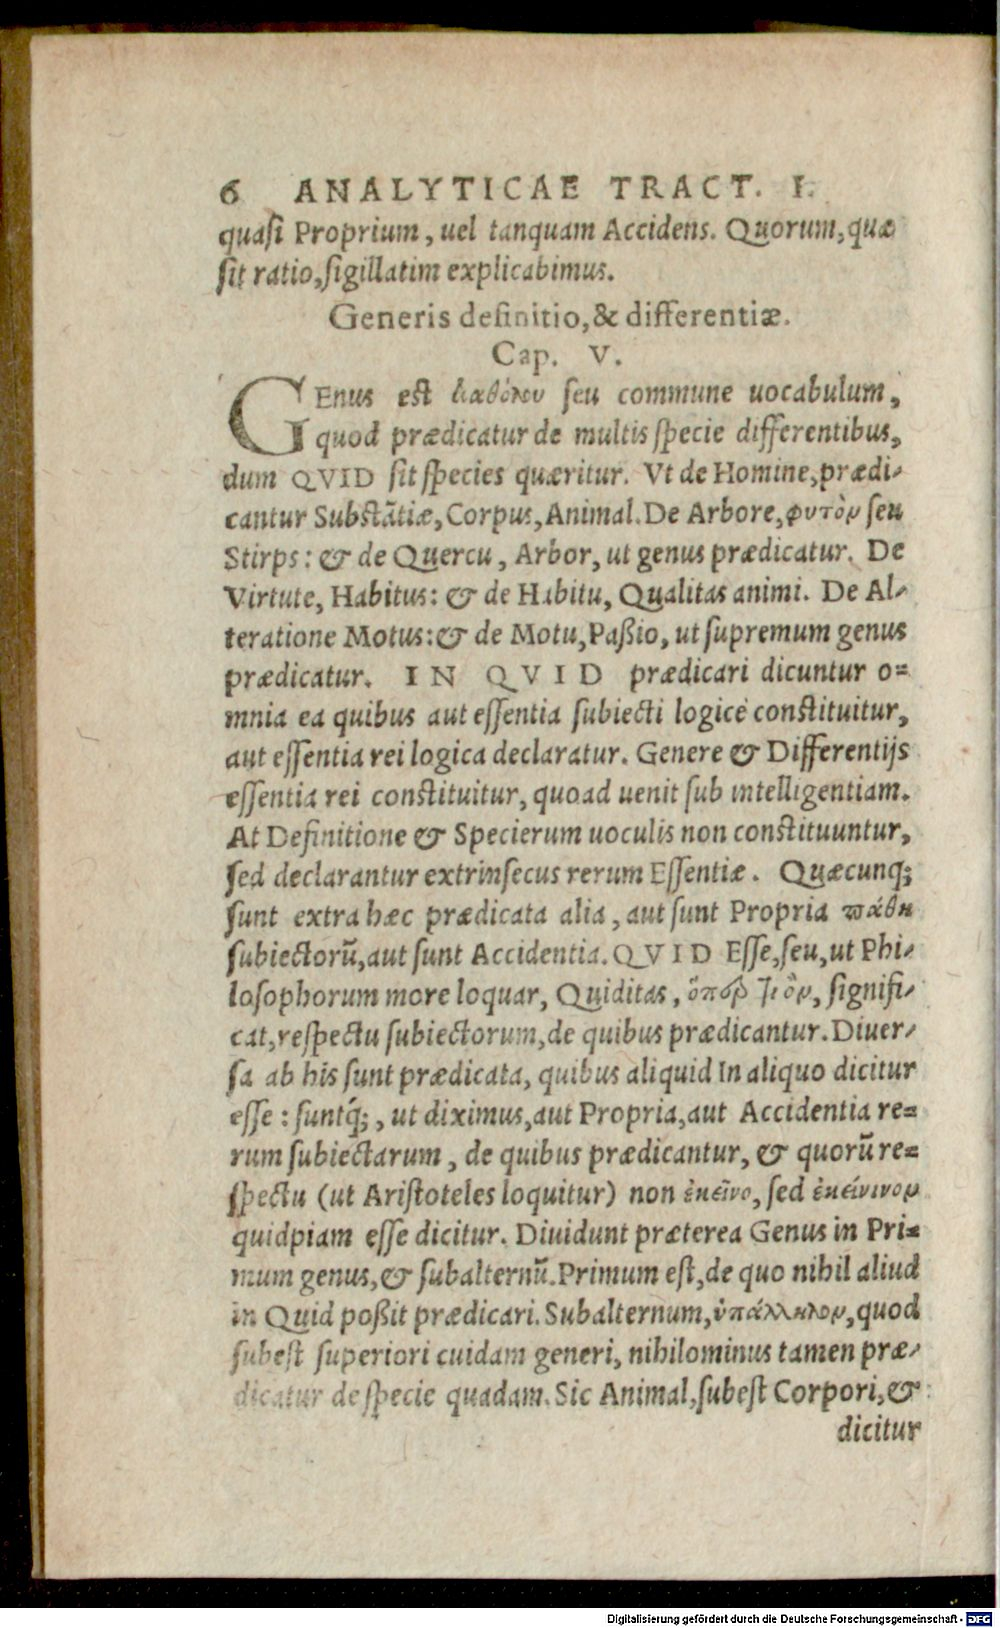 6 ANALYTICAE TRACT. I.
quasi Proprium, uel tanquam Accidens. Quorum, quæ
sit ratio, sigillatim explicabimus.
Generis definitio, & differentiæ.
Cap. V.
GEnus est καθόλου seu commune uocabulum,
quod prædicatur de multis specie differentibus,
dum QVID sit species quæritur. Vt de Homine, prædi-
cantur Substãtiæ, Corpus, Animal. De Arbore, φυτὸν seu
Stirps: & de Quercu, Arbor, ut genus prædicatur. De
Virtute, Habitus: & de Habitu, Qualitas animi. De Al-
teratione Motus: & de Motu, Paßio, ut supremum genus
prædicatur. IN QVID prædicari dicuntur o-
mnia ea quibus aut essentia subiecti logicè constituitur,
aut essentia rei logica declaratur. Genere & Differentijs
essentia rei constituitur, quoad uenit sub intelligentiam.
At Definitione & Specierum uoculis non constituuntur,
sed declarantur extrinsecus rerum Essentiæ. Quæcunq;
sunt extra hæc prædicata alia, aut sunt Propria πάθη
subiectorũ, aut sunt Accidentia. QVID Esse, seu, ut Phi-
losophorum more loquar, Quiditas, ὅπερ ὂν, signifi-
cat, respectu subiectorum, de quibus prædicantur. Diuer-
sa ab his sunt prædicata, quibus aliquid In aliquo dicitur
esse: suntq́;, ut diximus, aut Propria, aut Accidentia re-
rum subiectarum, de quibus prædicantur, & quorũ re-
spectu (ut Aristoteles loquitur) non ἐκεῖνο, sed ἐκείνινον
quidpiam esse dicitur. Diuidunt præterea Genus in Pri-
mum genus, & subalternũ. Primum est, de quo nihil aliud
in Quid poßit prædicari. Subalternum, ὑπάλληλον, quod
subest superiori cuidam generi, nihilominus tamen præ-
dicatur de specie quadam. Sic Animal, subest Corpori, &
dicitur
Digitalisierung gefördert durch die Deutsche Forschungsgemeinschaft - DFG